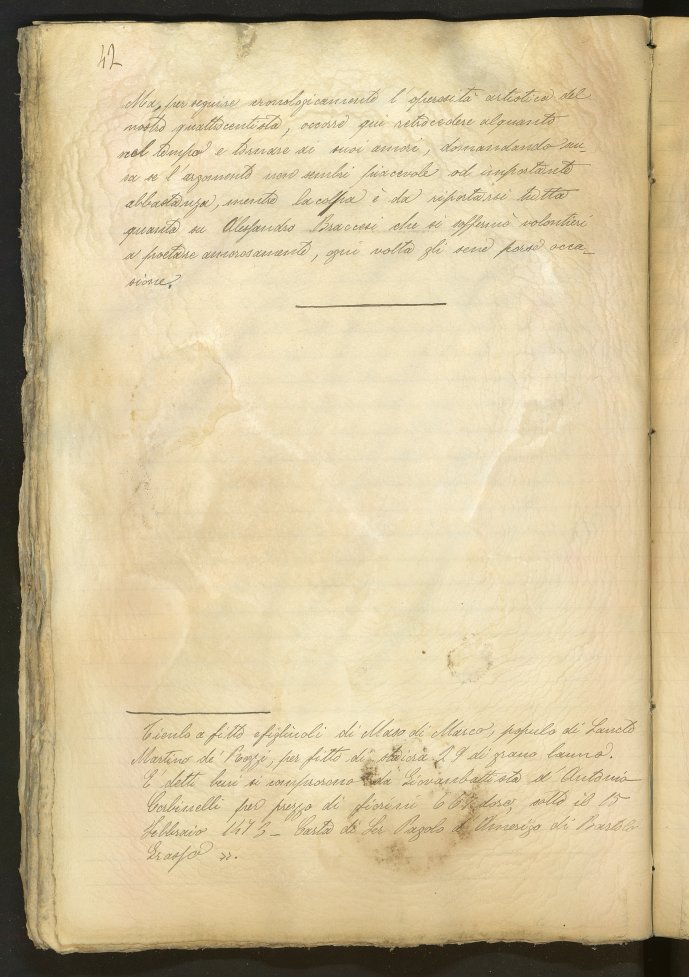 42
Ma, per seguire cronologicamente l'operosità artistica del
nostro quattrocentista, occorre qui retrocedere alquanto
nel tempo e tornare ai suoi amori, domandando scu
sa se l'argomento non sembri piacevole od importante
abbastanza, mentre la colpa è da riportarsi tutta
quanta su Alessandro Braccesi che si soffermò volontieri
a poetare amorosamente, ogni volta gli sene porse occa_
sione.
Tienlo a fitto efigliuoli di Maso di Marco, popolo di Sancto
Martino de' per fitto di staiora 29 di grano lanno.
E' detti beni si comprorono da Giovanbattista d'Antonio
Corbinelli per prezzo di fiorini sotto il 15
febbraio 1472 _ Carta di Ser Pagolo d'Amerigo di Bartolo
Grasso ».